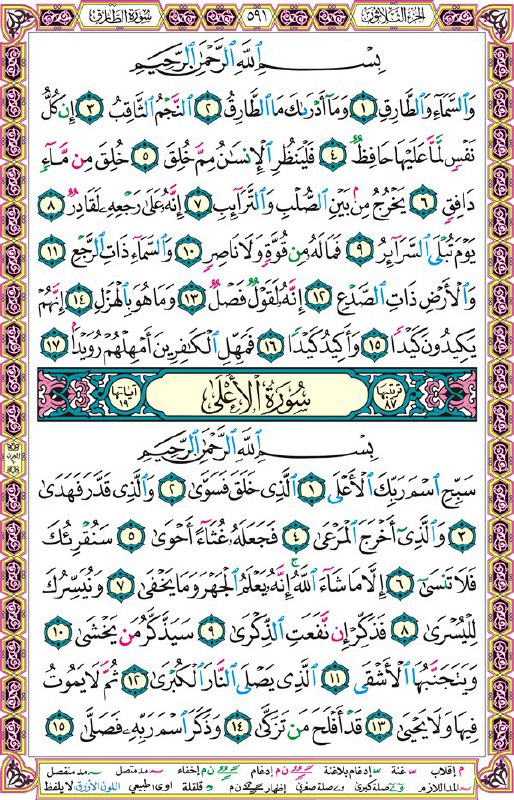 الجزء الثلاثون ٥٩١ سورة الطارق
بِسْمِ ٱللَّهِ ٱلرَّحْمَٰنِ ٱلرَّحِيمِ
وَٱلسَّمَآءِ وَٱلطَّارِقِ ١ وَمَآ أَدْرَىٰكَ مَا ٱلطَّارِقُ ٢ ٱلنَّجْمُ ٱلثَّاقِبُ ٣ إِن كُلُّ
نَفْسٍ لَّمَّا عَلَيْهَا حَافِظٌ ٤ فَلْيَنظُرِ ٱلْإِنسَٰنُ مِمَّ خُلِقَ ٥ خُلِقَ مِن مَّآءٍ
دَافِقٍ ٦ يَخْرُجُ مِنۢ بَيْنِ ٱلصُّلْبِ وَٱلتَّرَآئِبِ ٧ إِنَّهُۥ عَلَىٰ رَجْعِهِۦ لَقَادِرٌ ٨
يَوْمَ تُبْلَى ٱلسَّرَآئِرُ ٩ فَمَا لَهُۥ مِن قُوَّةٍ وَلَا نَاصِرٍ ١٠ وَٱلسَّمَآءِ ذَاتِ ٱلرَّجْعِ ١١
وَٱلْأَرْضِ ذَاتِ ٱلصَّدْعِ ١٢ إِنَّهُۥ لَقَوْلٌ فَصْلٌ ١٣ وَمَا هُوَ بِٱلْهَزْلِ ١٤ إِنَّهُمْ
يَكِيدُونَ كَيْدًا ١٥ وَأَكِيدُ كَيْدًا ١٦ فَمَهِّلِ ٱلْكَٰفِرِينَ أَمْهِلْهُمْ رُوَيْدًۢا ١٧
ترتيبها ٨٧ سُورَةُ ٱلْأَعْلَىٰ آياتها ١٩
بِسْمِ ٱللَّهِ ٱلرَّحْمَٰنِ ٱلرَّحِيمِ
سَبِّحِ ٱسْمَ رَبِّكَ ٱلْأَعْلَى ١ ٱلَّذِى خَلَقَ فَسَوَّىٰ ٢ وَٱلَّذِى قَدَّرَ فَهَدَىٰ
٣ وَٱلَّذِىٓ أَخْرَجَ ٱلْمَرْعَىٰ ٤ فَجَعَلَهُۥ غُثَآءً أَحْوَىٰ ٥ سَنُقْرِئُكَ
فَلَا تَنسَىٰٓ ٦ إِلَّا مَا شَآءَ ٱللَّهُ ۚ إِنَّهُۥ يَعْلَمُ ٱلْجَهْرَ وَمَا يَخْفَىٰ ٧ وَنُيَسِّرُكَ
لِلْيُسْرَىٰ ٨ فَذَكِّرْ إِن نَّفَعَتِ ٱلذِّكْرَىٰ ٩ سَيَذَّكَّرُ مَن يَخْشَىٰ ١٠
وَيَتَجَنَّبُهَا ٱلْأَشْقَى ١١ ٱلَّذِى يَصْلَى ٱلنَّارَ ٱلْكُبْرَىٰ ١٢ ثُمَّ لَا يَمُوتُ
فِيهَا وَلَا يَحْيَىٰ ١٣ قَدْ أَفْلَحَ مَن تَزَكَّىٰ ١٤ وَذَكَرَ ٱسْمَ رَبِّهِۦ فَصَلَّىٰ ١٥
م إقلاب غنة إدغام بلاغنة ن م إدغام ن م إخفاء مد متصل مد منفصل
المد اللازم صلة كبرى صلة صغرى إظهار ن م قلقلة مد طبيعي اللون الأزرق لا يلفظ